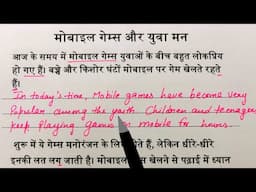 मोबाइल गेम्स और युवा मन
आज के समय में मोबाइल गेम्स युवाओं के बीच बहुत लोकप्रिय
हो गए हैं। बच्चे और किशोर घंटों मोबाइल पर गेम खेलते रहते
हैं।
In today's time, Mobile games have become very
Popular among the youth Children and teenagers
keep playing games on mobile for hours
शुरू में ये गेम्स मनोरंजन के लिए होते हैं, लेकिन धीरे-धीरे
इनकी लत लग जाती है। मोबाइल खेलने से पढ़ाई में ध्यान